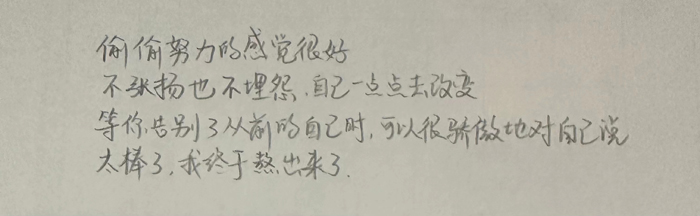 偷偷努力的感觉很好
不张扬也不埋怨.自己一点点去改变
等你告别了从前的自己时,可以很骄傲地对自己说
太棒了,我终于熬出来了.